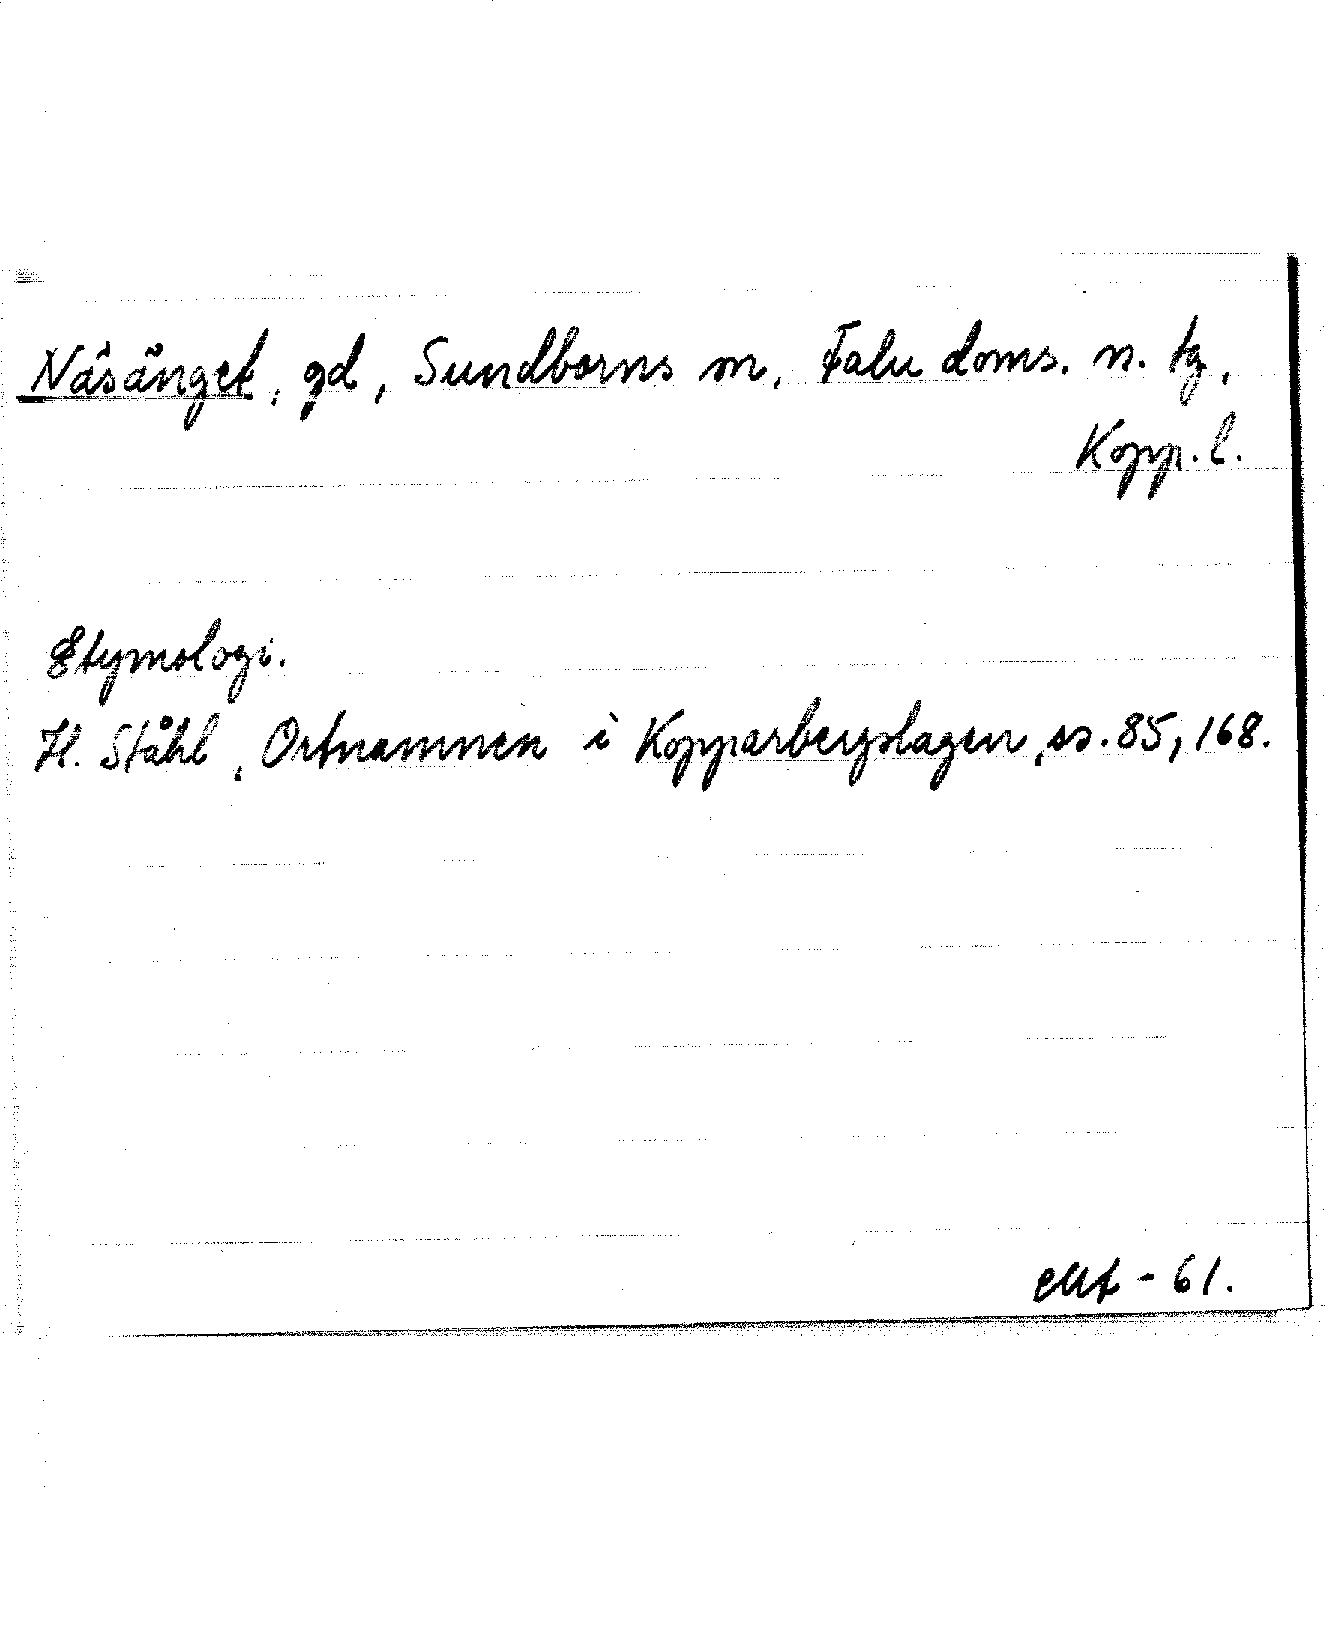 Näsänget, gd, Sundborns sn, Falu doms. n. tg,
Kopp. l.
Etymologi.
H. Ståhl, Ortnamnen i Kopparbergslagen, ss. 85, 168.
- 61.